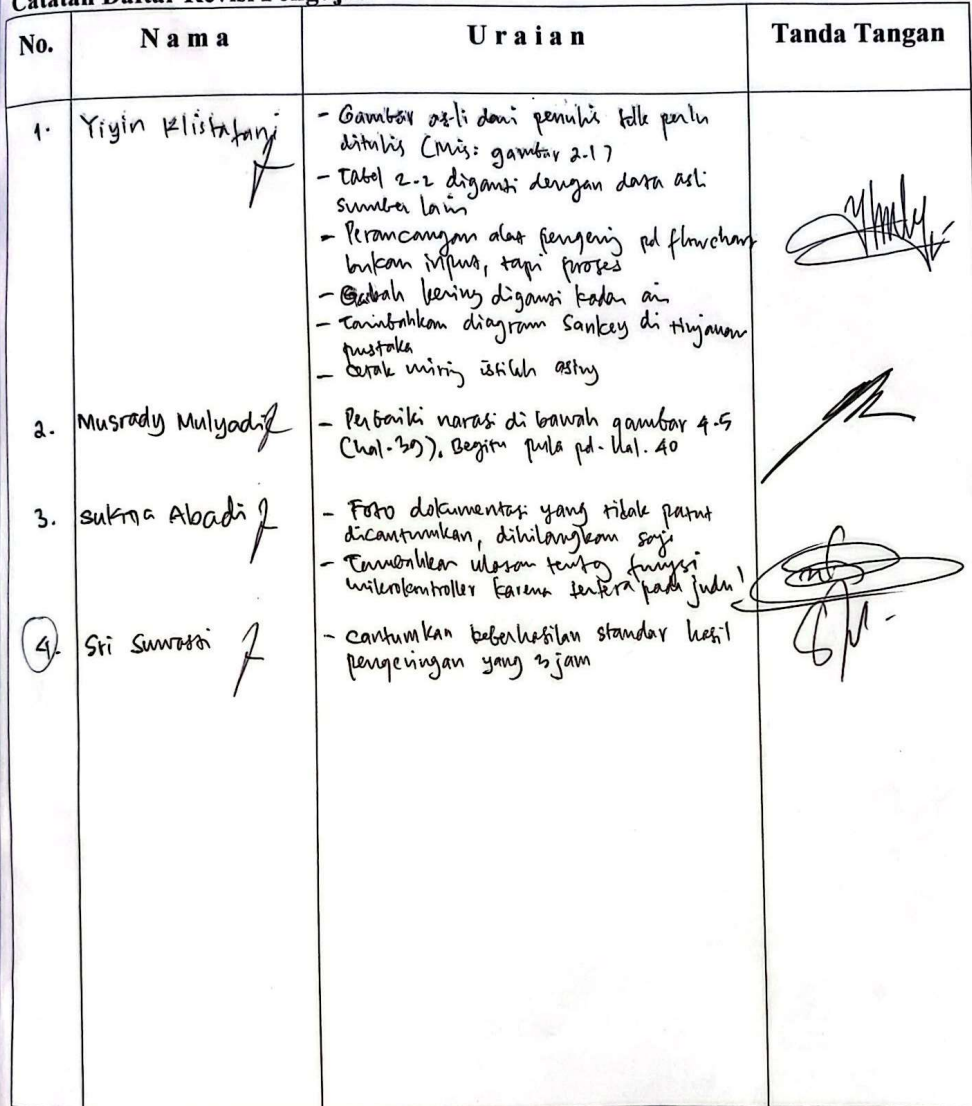 Catatan Daftar Revisi
No. Nama Uraian Tanda Tangan
1. Yiyin Klistafani
- Gambar asli dari penulis tdk perlu
ditulis (Mis: gambar 2.1)
- Tabel 2.2 diganti dengan data asli
sumber lain
- Perancangan alat pengering pd flowchart
bukan input, tapi proses
- Gabah kering diganti kadar air
- Tambahkan diagram Sankey di tinjauan
pustaka
- Cetak miring istilah asing
2. Musrady Mulyadi
- Perbaiki narasi di bawah gambar 4.5
(hal. 39). Begitu pula pd. hal. 40
3. Sukma Abadi
- Foto dokumentasi yang tidak patut
dicantumkan, dihilangkan saja
- Tambahkan ulasan tentg fungsi
mikrokontroller karena tertera pada judul
4. Sri Suwasti
- cantumkan keberhasilan standar hasil
pengeringan yang 3 jam